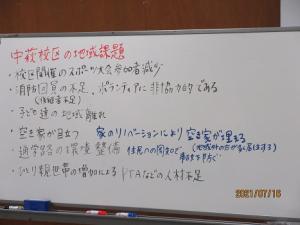 中萩校区の地域課題
・校区開催のスポーツ大会参加者減少
・消防団員の不足、ボランティアに非協力的である
(後継者不足)
・子ども達の地域離れ
・空き家が目立つ 家のリノベーションにより空き家が埋まる
・通学路の環境整備 住民への周知で
(地域外の方が多く居住する)
・ひとり親世帯の増加による PTAなどの人材不足
2021/07/16